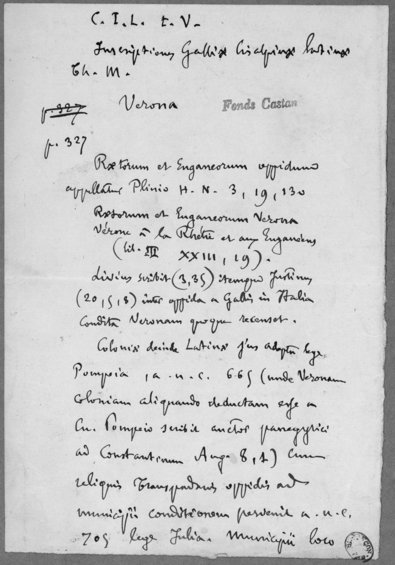 C. I. L. t. V.
Inscriptiones Galliæ Cisalpinæ Latinæ
Th. M.
p. 327
Verona
Fonds Castan
p. 327
Rætorum et Euganeorum oppidum
appellatur Plinio H. N. 3, 19, 130
Rætorum et Euganeorum Verona
Vérone à la Rhétie et aux Euganéens
(lit. III XXIII, 19).
Livius scribit (3,35) itemque Justinus
(20, 5, 8) inter oppida a Gallis in Italia
condita Veronam quoque recenset.
Coloniæ deinde Latinæ jus adepta lege
Pompeia, a. u. c. 665 (unde Veronam
coloniam aliquando deductam esse a
Cn. Pompeio scribit auctor panegyrici
ad Constantinum Aug. 8, 1) cum
reliquis Transpadanis oppidis ad
municipii conditionem pervenit a. u. c.
705 lege Julia. Municipii loco